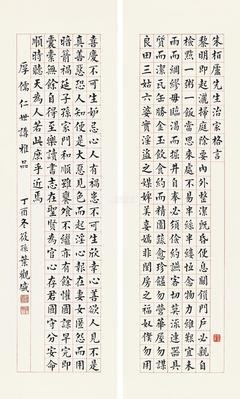 朱柏廬先生治家格言
黎明即起灑掃庭除要內外整潔既昏便息關鎖門戶必親自
檢點一粥一飯當思來處不易半絲半縷恆念物力維艱宜未
雨而綢繆毋臨渴而掘井自奉必須儉約讌客切莫流連器具
質而潔瓦缶勝金玉飲食約而精園蔬愈珍饈勿營華屋勿謀
良田三姑六婆實淫盜之媒婢美妾嬌非閨房之福奴僕勿用
喜慶不可生妒忌心人有禍患不可生欣幸心善欲人見不是
真善惡恐人知便是大惡見色而起淫心報在妻女匿怨而用
暗箭禍延子孫家門和順雖饔飧不繼亦有餘懽國課早完即
囊橐無餘自得至樂讀書志在聖賢為官心存君國守分安命
順時聽天為人若此庶乎近焉
厚儒仁世講雅品
丁酉冬筱孫葉觀